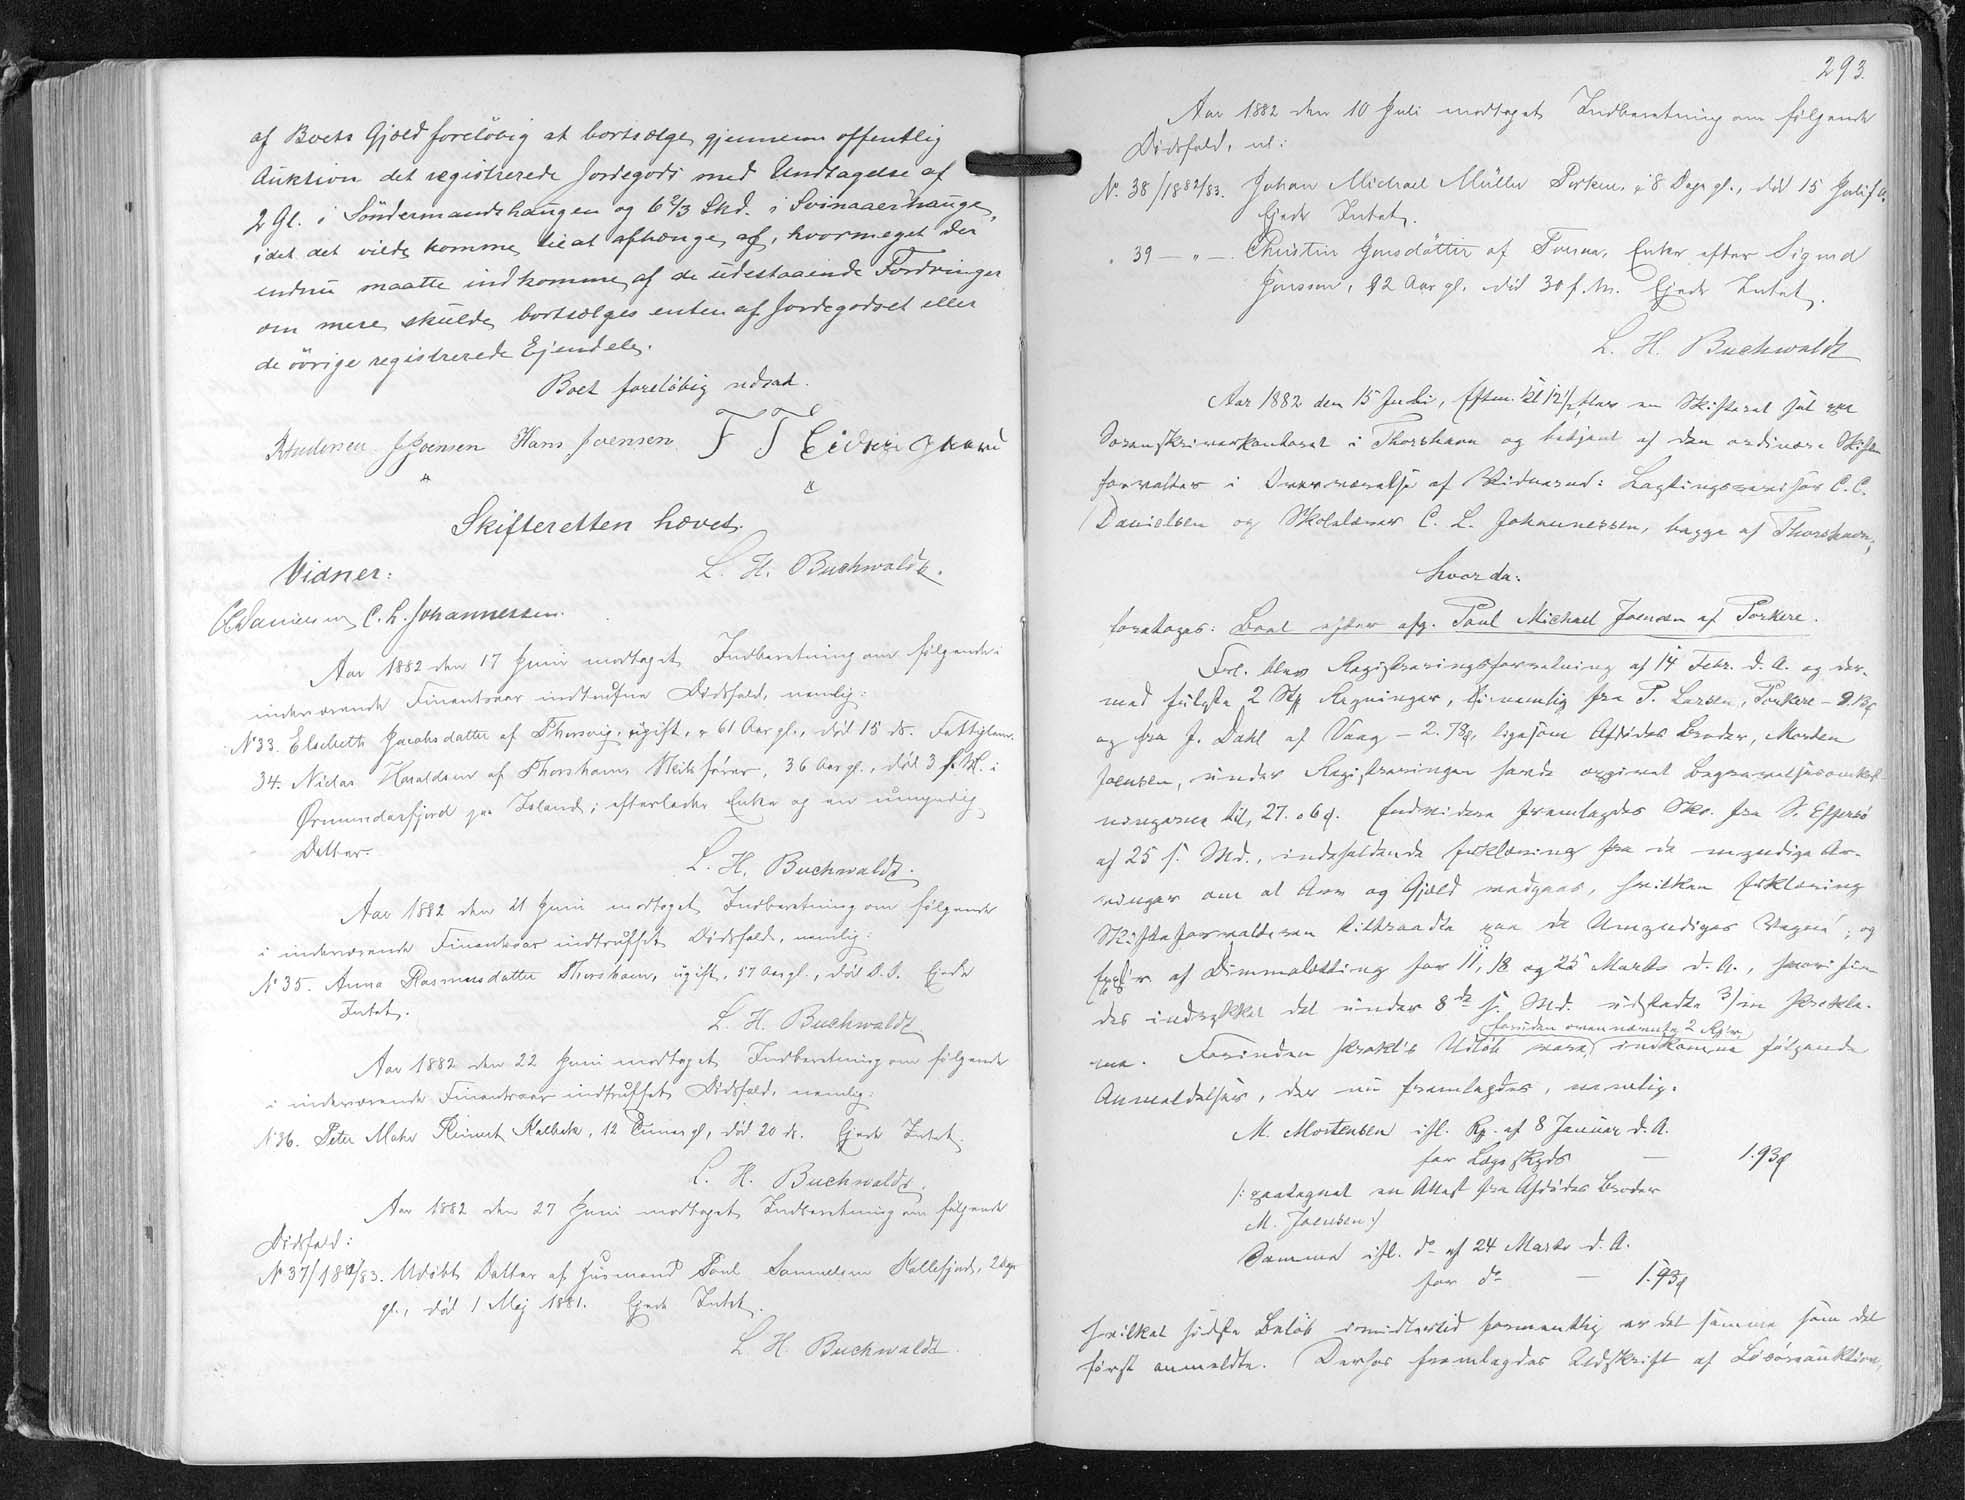 af Boets Gjæld foreløbig at bortsælge gjennem offentlig
Auktion det registrerede Jordegods med Undtagelse af
2 Gl. i Söndermandshaugen og 6 2/3 Skd. i Svinaaerhauge,
idet det vilde komme til at afhænge af, hvormeget der
endnu maatte indkomme af de udestaaende Fordringer
om mere skulde bortsælges enten af Jordegodset eller
de övrige registrerede Ejendele.
Boet foreløbig udsat.
J Joensen Hans Joensen
Skifteretten hævet.
L. H. Buchwaldt.
Vidner:
CCDanielsen C. L. Johannessen.
Aar 1882 den 17 Juni modtaget Indberetning om følgende i
indeværende Finantsaar indtrufne Dødsfald, nemlig:
No 33. Elsebeth Jacobsdatter af Thorsvig, ugift, 61 Aar gl., død 15 ds. Fattiglem.
34. Niclas Haraldsen af Thorshavn, 36 Aar gl., død 3 f. M. i
Ørnundarfjord paa Island; efterlader Enke og en umyndig
Datter.
L. H. Buchwaldt.
Aar 1882 den 21 Juni modtaget Indberetning om følgende
i indeværende Finantsaar indtruffet Dødsfald, nemlig:
No 35. Anna Rasmusdatter Thorshavn, ugift, 57 Aar gl., død D. D. Ejede
Intet.
L. H. Buchwaldt
Aar 1882 den 22 Juni modtaget Indberetning om følgende
i indeværende Finantsaar indtruffet Dødsfald, nemlig:
No 36. Peter Mohr Reinert Kalbak, 12 Timer gl, død 20 ds. Ejede Intet.
L. H. Buchwaldt.
Aar 1882 den 27 Juni modtaget Indberetning om følgende
Dødsfald:
No 37/1882/83. Udøbt Datter af Husmand Poul Samuelsen Kollefjord, 2 Dage
gl., død 1 Maj 1881. Ejede Intet.
L. H. Buchwaldt.
293.
Aar 1882 den 10 Juli modtaget Indberetning om følgende
Dødsfald, nl:
No. 38/1882/83. Johan Michael Müller Porkere, 8 Dage gl., død 15 Juni f. A.
Ejede Intet.
" 39 — " — Christin Jonsdötter af Enke efter Sigmd
Joensen, 92 Aar gl. død 30 f. M. Ejede Intet.
L. H. Buchwaldt
Aar 1882 den 15 Juli, Eftm. Kl 12 1/2, blev en Skifteret sat paa
Sorenskriverkontoret i Thorshavn og betjent af den ordinære Skifte
forvalter i Overværelse af Vidnerne: Lagtingsrevisor C. C.
Danielsen og Skolelærer C. L. Johannessen, begge af Thorshavn;
hvor da:
foretoges: Boet efter afg. Poul Michael Joensen af Porkere.
Frl. blev Registreringsforretning af 14 Febr. d. A. og der-
med fulgte 2 Stk Regninger, nemlig fra P. Larsen, Porkere –
og fra J. Dahl af Vaag – 2. 78 ligesom Afdødes Broder, Morten
Joensen, under Registreringen havde opgivet Begravelsesomkost-
ningerne til, 27. 06. Endvidere fremlagdes Skr. fra S. Effersö
af 25 f. Md., indeholdende Erklæring fra de myndige Ar-
vinger om at Arv og Gjæld vedgaas, hvilken Erklæring
Skifteforvalteren tiltraadte paa de Umyndiges Vegne; og
Expl'r af Dimmalætting for 11, 18 og 25 Marts d. A., hvori fin-
des indrykket det under 8de s. Md. udstedte 3/m Prokla-
ma. Forinden Prokl's Udløb vare, foruden ovennævnte 2 Rg'r, indkomne følgende
Anmeldelser, der nu fremlagdes, nemlig:
M. Mortensen ifl. Rg. af 8 Januar d. A.
for — 1.93
/: paategnet en Attest fra Afdødes Broder
M. Joensen:/
Samme ifl. do af 24 Marts d. A.
for do — 1.93
hvilket sidste Beløb imidlertid formentlig er det samme som det
først anmeldte. Derhos fremlagdes Udskrift af Løsøreauktion,